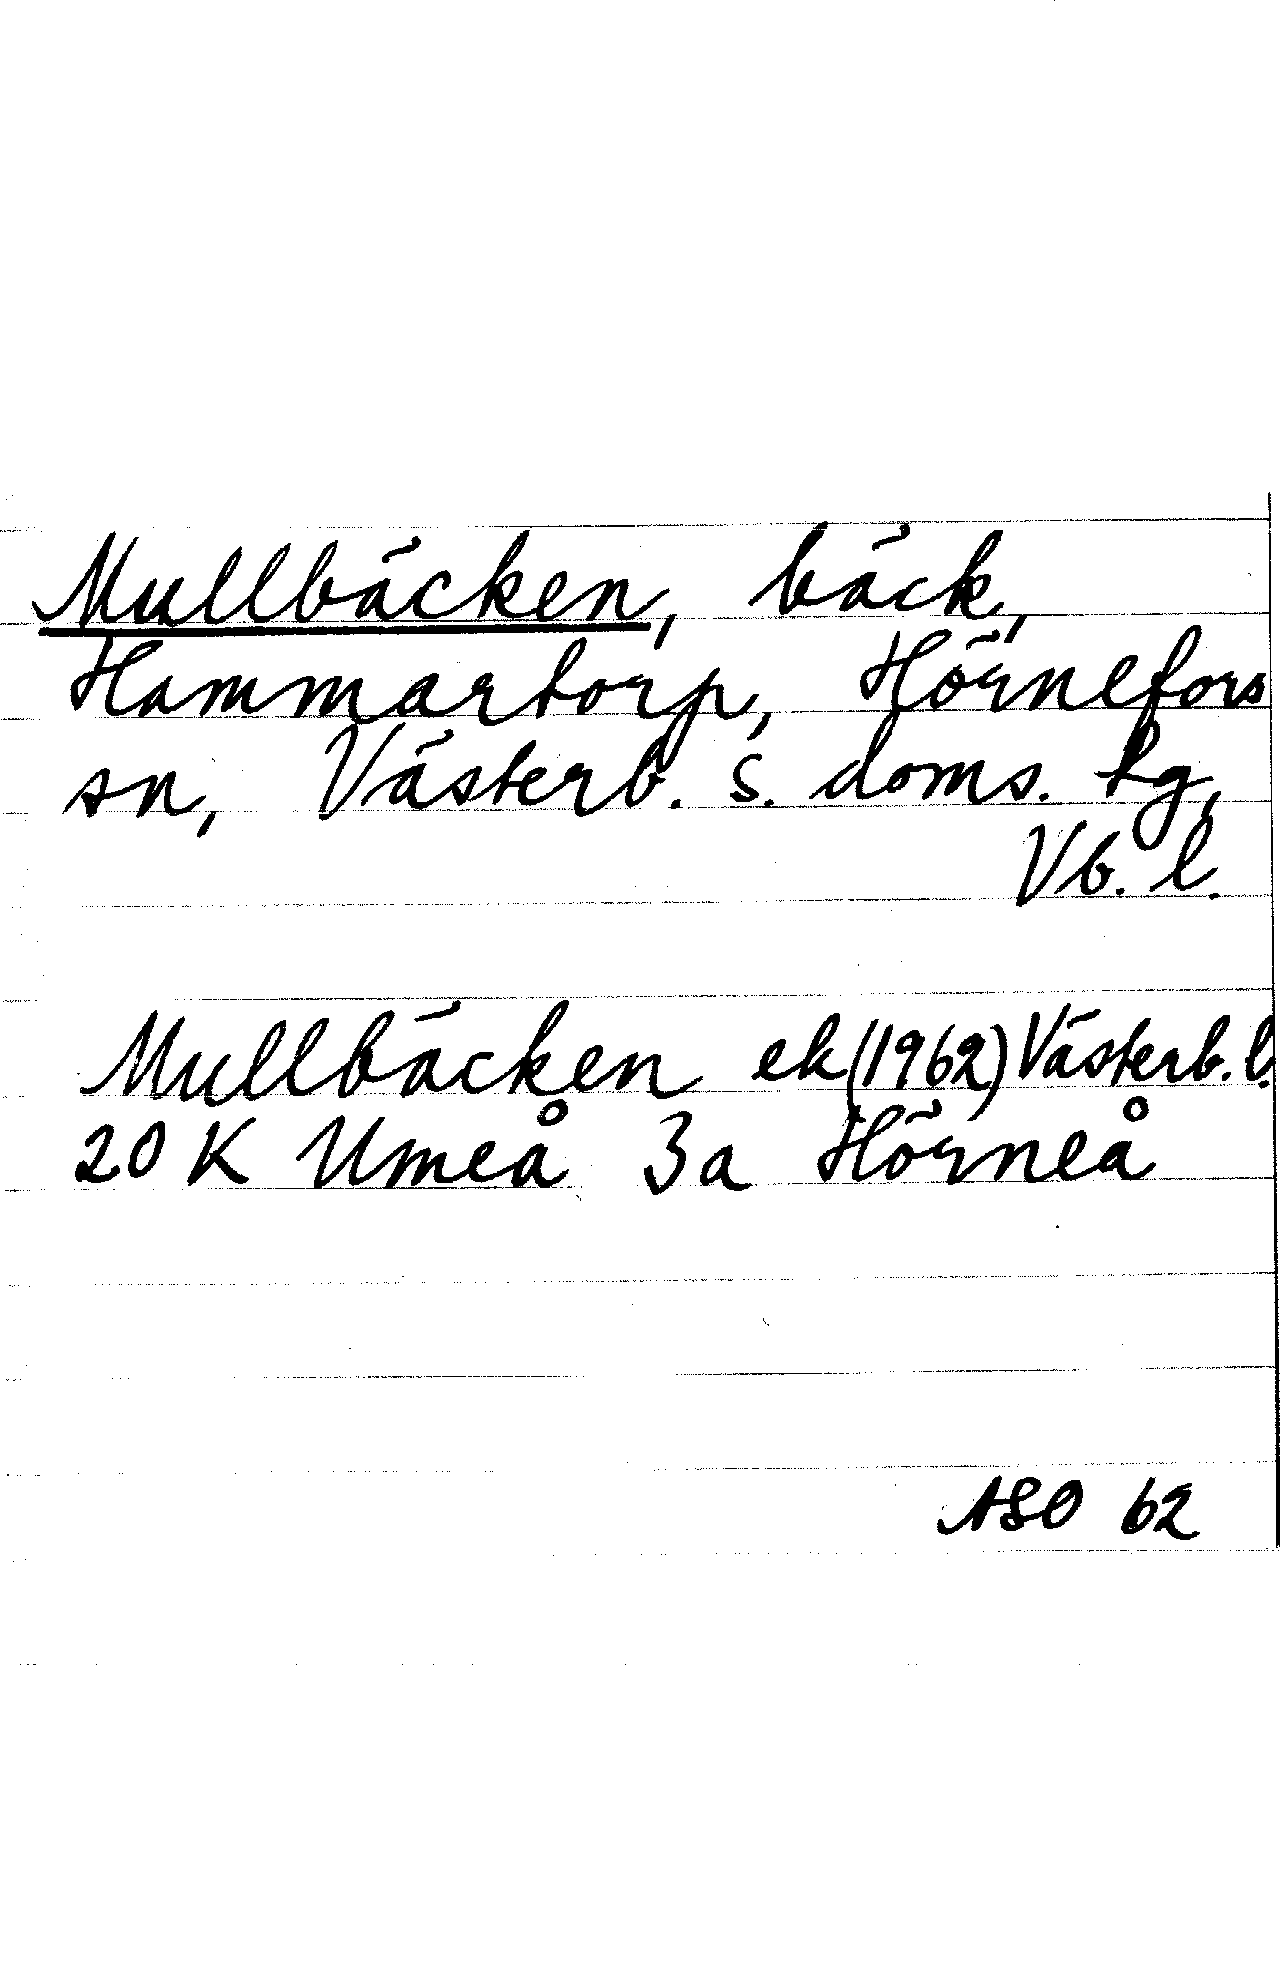 Mullbäcken, bäck,
Hammartorp, Hörnefors
sn, Västerb. s. doms. tg,
Vb. l.
Mullbäcken ek (1962) Västerb. l.
20 K Umeå 3a Hörneå
ASO 62